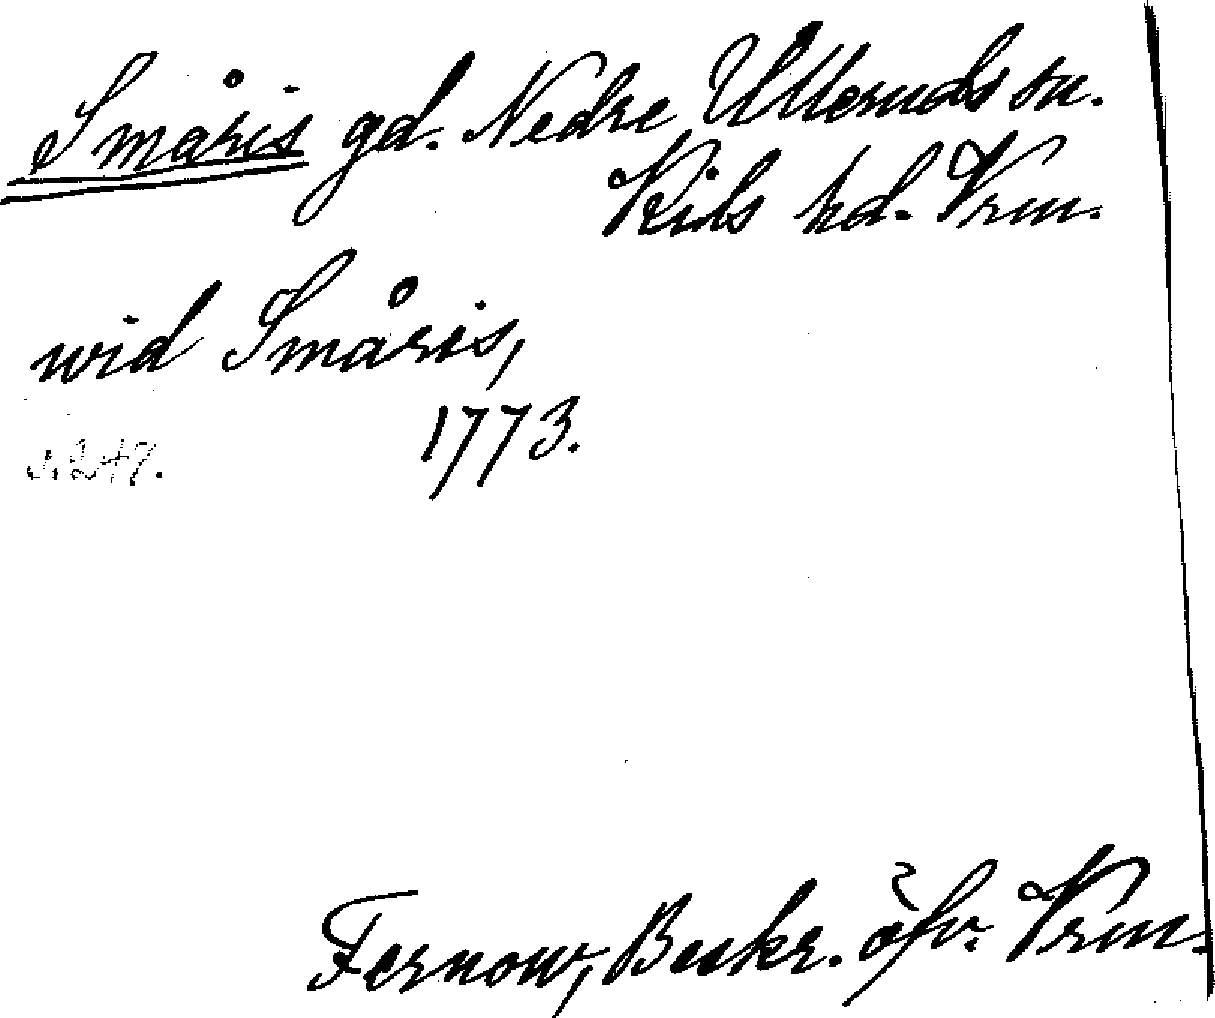 Småris gd. Nedre Ulleruds sn.
Kils hd. Vrm.
wid Småris,
1773.
s. 247.
Fernow, Beskr. öfv. Vrm.